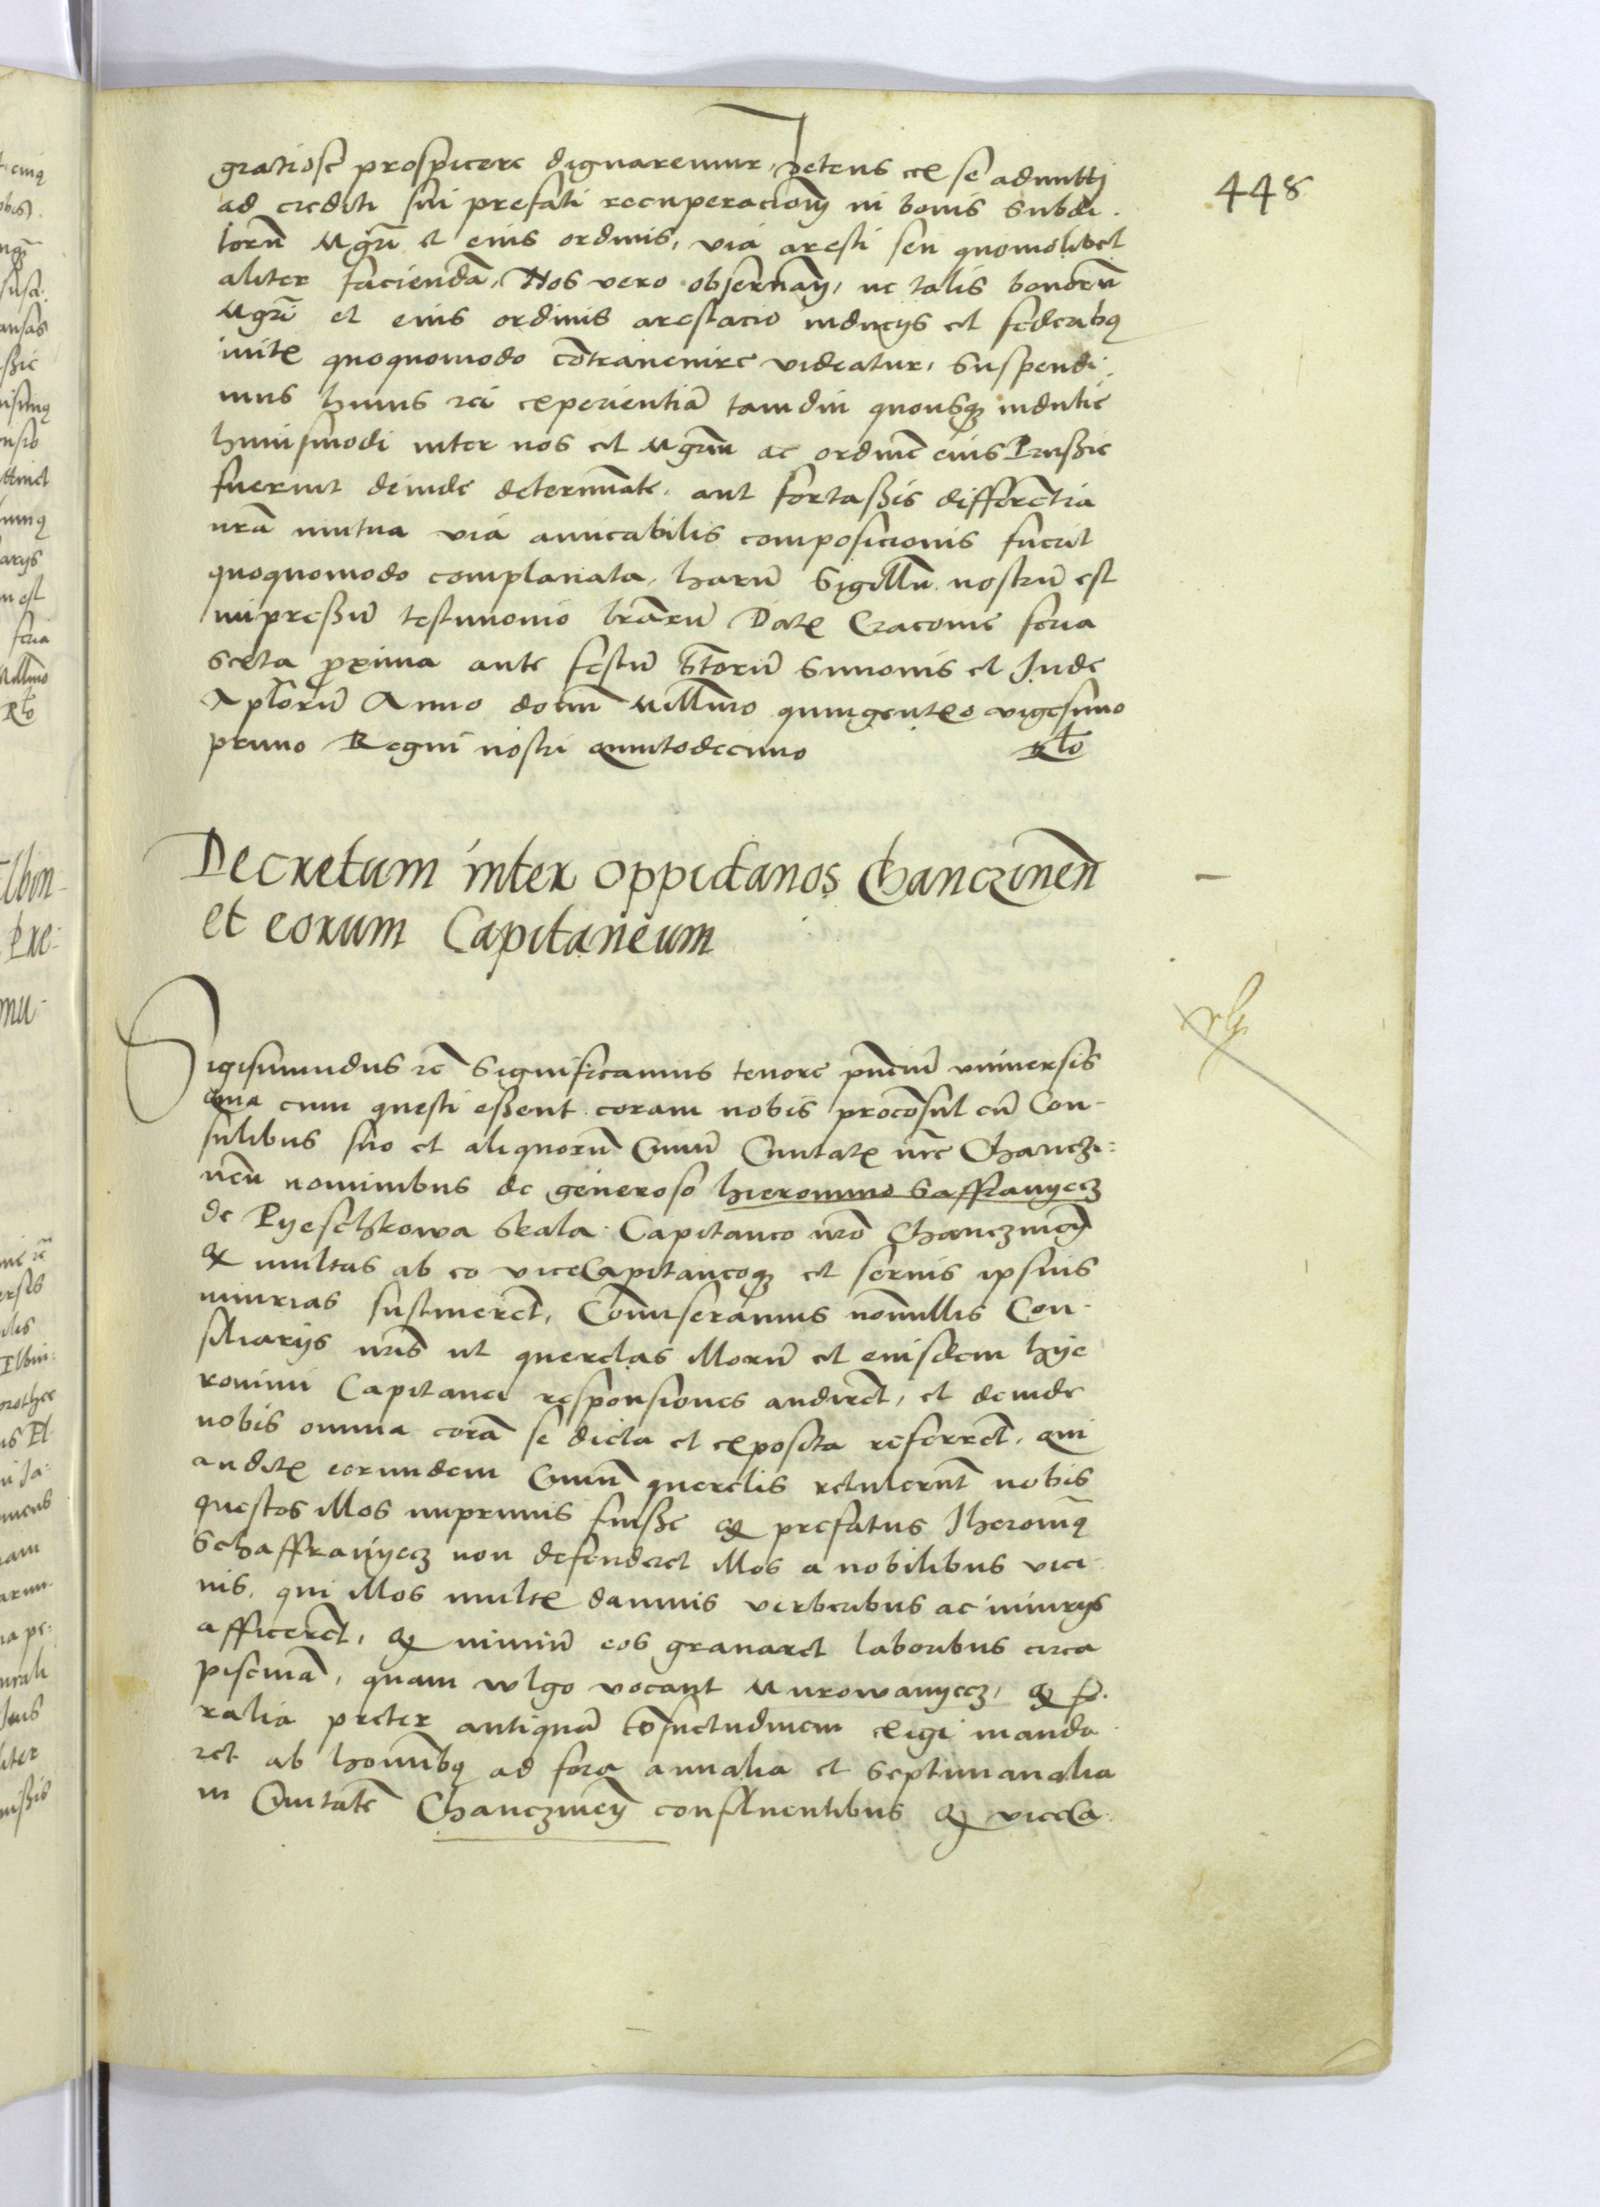 448
gratiose prospicere dignaremur, petens ex se admitti
ad crediti sui prefati recuperacionē in bonis subdi-
torū Mgrī et eius ordinis, via aresti seu quomolibet
aliter faciendā, Nos vero observañ, ne talis bonorū
Mgrī et eius ordinis arestacio inducijs et federibꝰ
initꝭ quoquomodo cōtravenire videatur, suspendi-
mus huius rei experientiā tamdiu quousqꝫ indutie
huiusmodi inter nos et Mgrūm ac ordinē eius Prussie
fuerint deinde determinate, aut fortassis differētia
nrā mutua via amicabilis composicionis fuerit
quoquomodo complanata, harū Sigillū nostrū est
impressū testimonio lrārū Datꝭ Cracovie feria
sexta proxima ante festū Sctorū Simonis et Jude
Aplorū Anno domī Millmo quingentꝭo vigesimo
primo Regni nostri quintodecimo Rlo
Decretum inter oppidanos Chanczinen̄
et eorum Capitaneum
Sigismundus rc̄ Significamus tenore pn̄ciū universis
Quia cum questi essent coram nobis procōsul cū Con-
sulibus suo et aliquorū Civiū Civitatꝭ nrē Chanczi-
nen̄ nominibus de generoso hieronimo Saffranyecz
de Pyeschkowa Skala Capitaneo nrō Chanczineñ
qꝫ multas ab eo viceCapitaneoqꝫ et servis ipsius
iniurias sustinerēt, Comiseramus nōnullis Con-
siliarijs nrīs ut querelas illorū et eiusdem hije
ronimi Capitanei responsiones audirēt, et deinde
nobis omnia corā se dicta et exposita referrēt, qui
auditꝭ eorundem Civiū querelis retulerūt nobis
questos illos inprimis fuisse qꝫ prefatus Jheronimꝰ
Schaffranyecz non defenderet illos a nobilibus vici-
nis, qui illos multꝭ damnis verberibus ac iniurijs
afficerēt, qꝫ nimiū eos gravaret laboribus circa
piscinā, quam vlgo vocant Murowanyecz, qꝫ fo-
ralia preter antiquā cōsuetudinem exigi manda
ret ab hominibꝰ ad fora annalia et septimanalia
in Civitatē Chanczineñ confluentibus qꝫ viceCa-